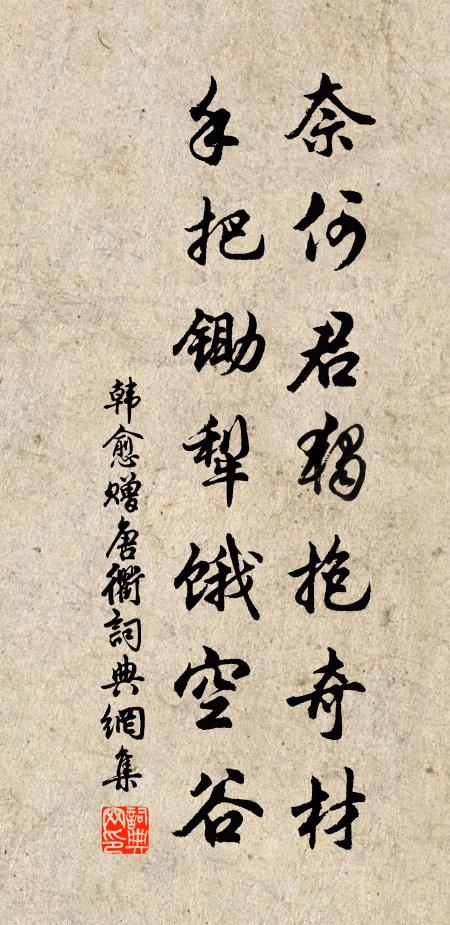 奈何君獨抱奇材
手把鋤犁餓空谷
韓愈贈唐衢詞典網集
詞典网印